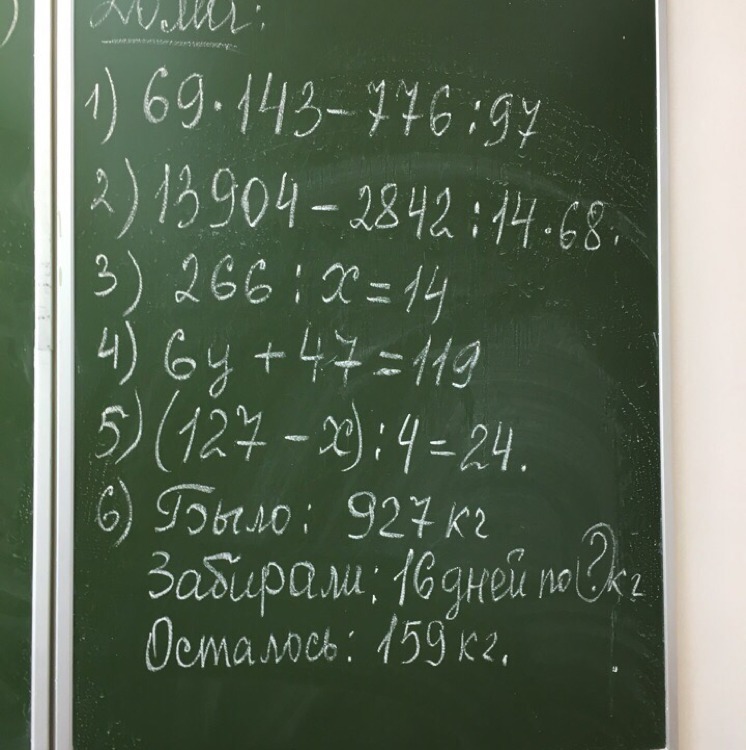 Дома:
1) 69·143-776:97
2) 13904-2842:14·68.
3) 266:x=14
4) 6y+47=119
5) (127-x):4=24.
6) Было: 927 кг
Забирали: 16 дней по ? кг
Осталось: 159 кг.